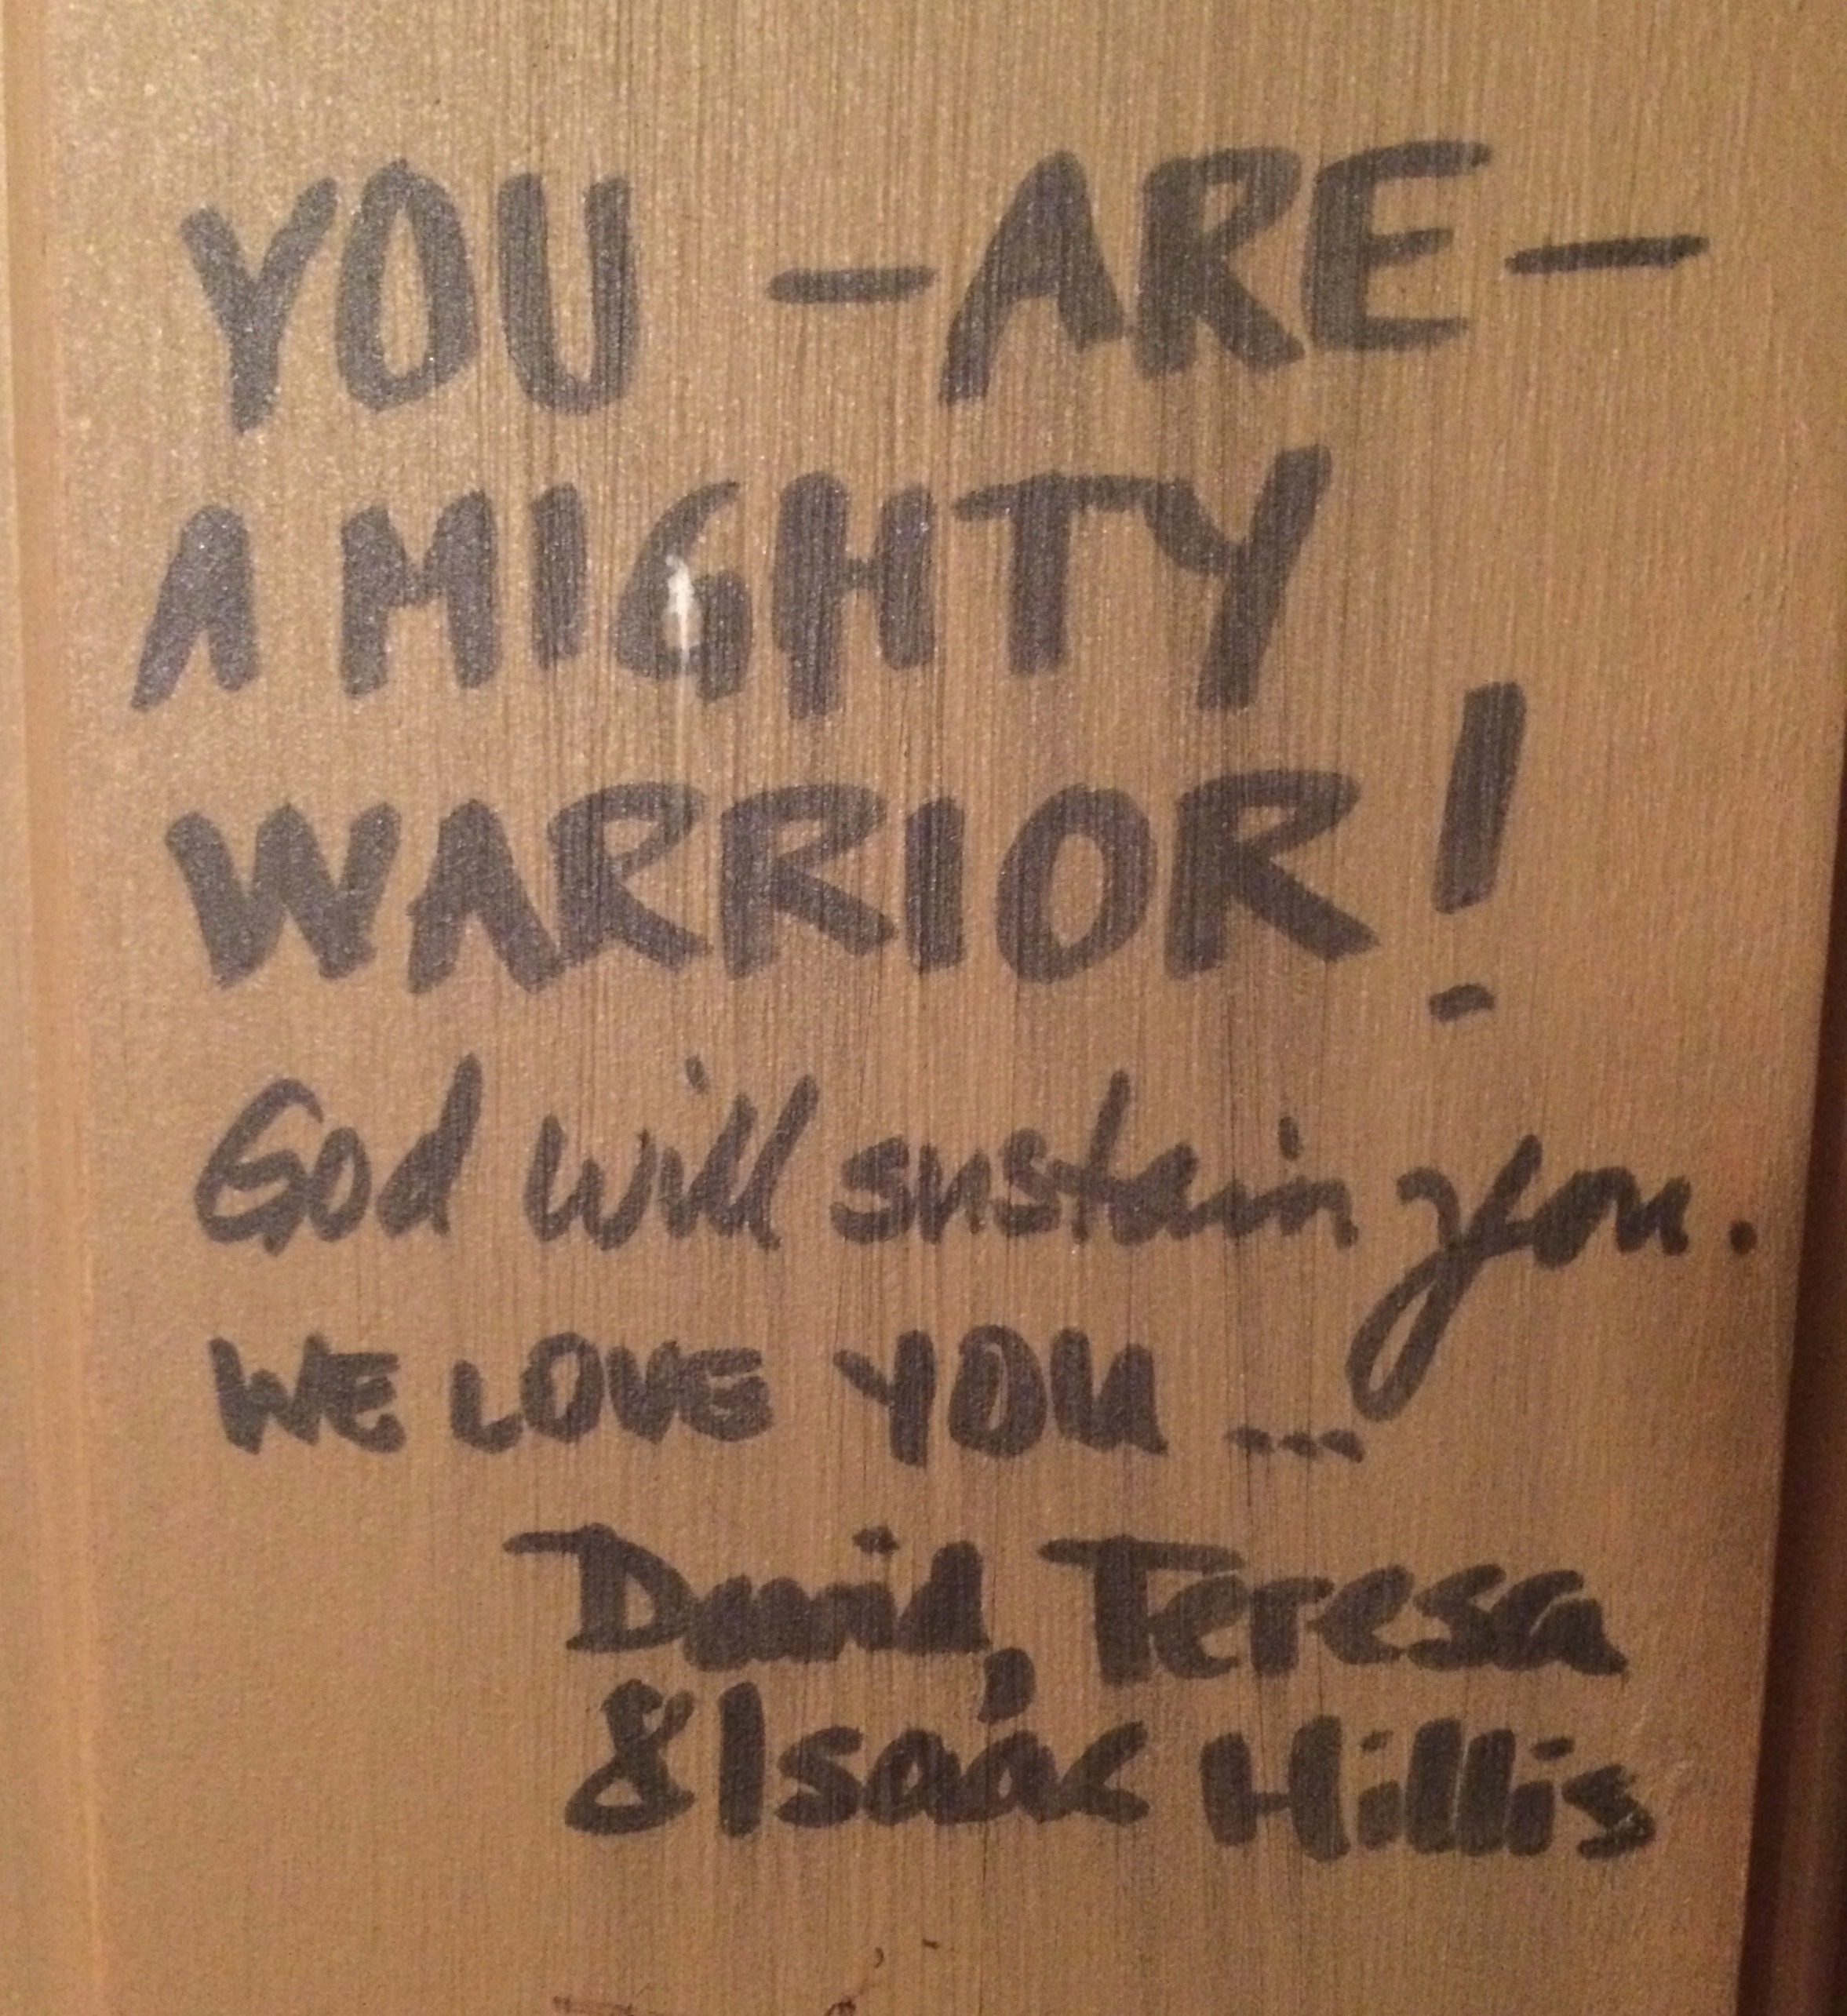 YOU -ARE-
A MIGHTY
WARRIOR!
God will sustain you.
WE LOVE YOU ...
David, Teresa
& Isaac Hillis